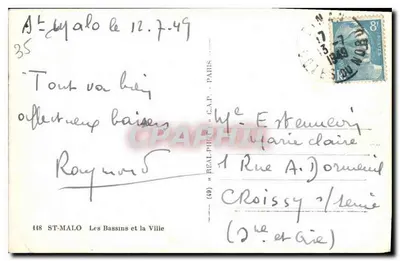 St Malo le 12.7.49
35
Tout va bien
affectueux baisers
Raymond
Marie Claire
1 Rue A. Dormeuil
CROISSY s/Seine
(S et Oise)
118 ST-MALO Les Bassins et la Ville
(49) « REAL-PHOTO » C.A.P. - PARIS
8F
CPARAMA